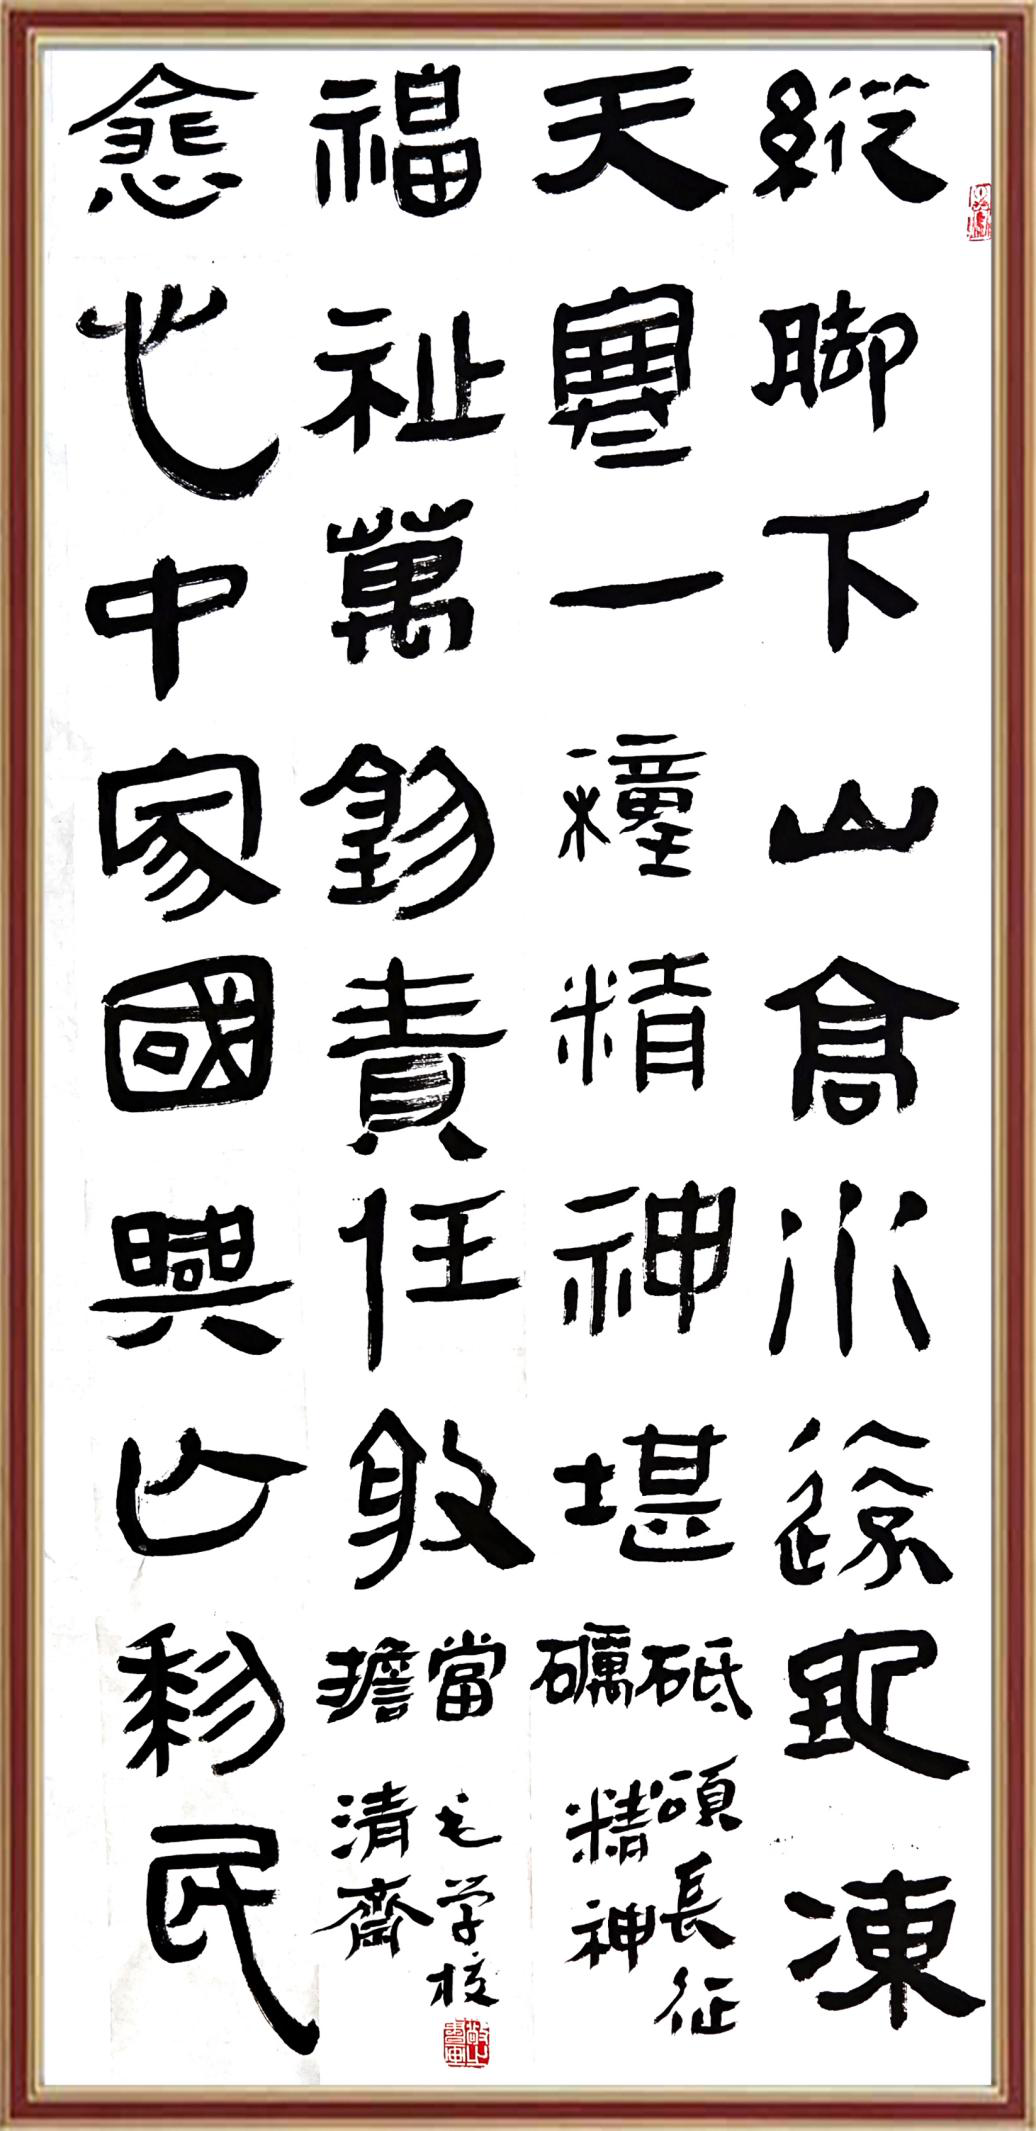 縱脚下山高水遠地凍
天寒一種精神堪砥礪
頌長征
精神
念心中家國興亡黎民
福祉萬鈞責任敢擔當
清齋
毛学校